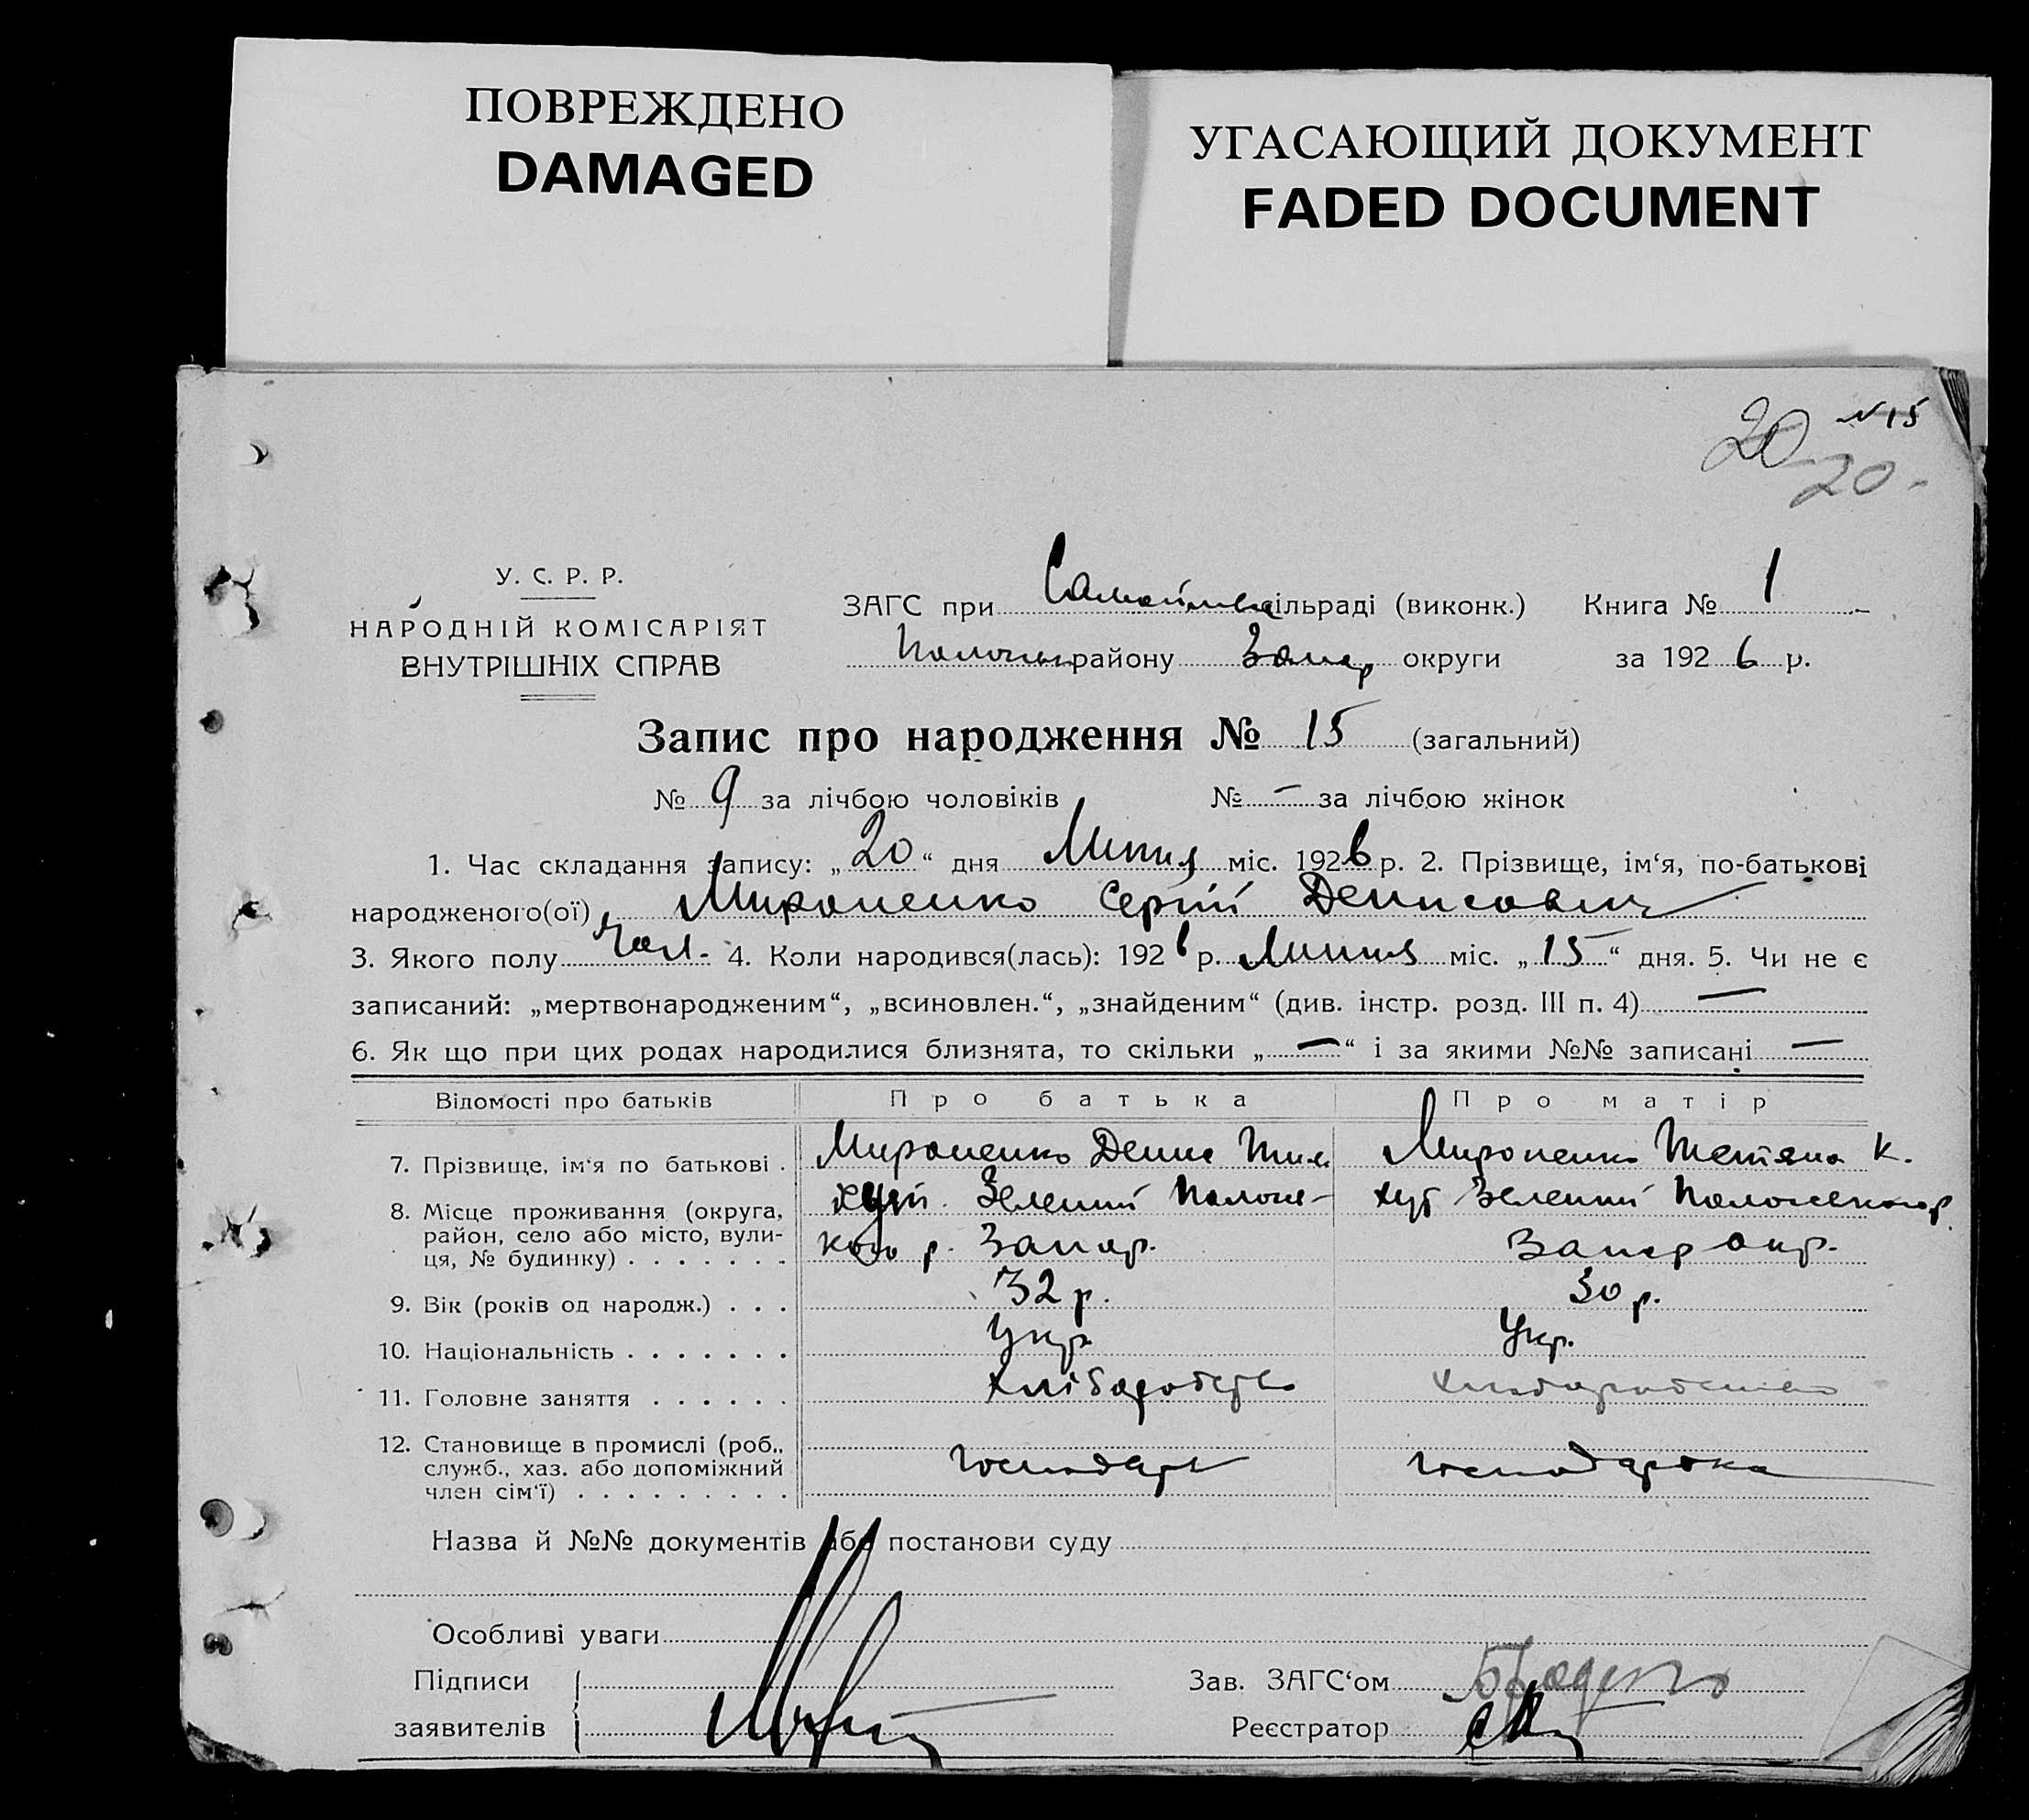 ПОВРЕЖДЕНО
DAMAGED
УГАСАЮЩИЙ ДОКУМЕНТ
FADED DOCUMENT
20 N 15
20
У. С. Р. Р.
НАРОДНІЙ КОМІСАРІЯТ
ВНУТРІШНІХ СПРАВ
ЗАГС при сільраді (виконк.) Книга № 1
району Запор округи за 1926 р.
Запис про народження № 15 (загальний)
№ 9 за лічбою чоловіків № – за лічбою жінок
1. Час складання запису: „20“ дня Липня міс. 1926 р. 2. Прізвище, ім‘я, по-батькові
народженого(ої) Мироненко Сергій Денисович
3. Якого полу чол. 4. Коли народився(лась): 1926 р. Липня міс. „15“ дня. 5. Чи не є
записаний: „мертвонародженим“, „всиновлен.“, „знайденим“ (див. інстр. розд. III п. 4) —
6. Як що при цих родах народилися близнята, то скільки „—“ і за якими №№ записані —
Відомості про батьків Про батька Про матір
7. Прізвище, ім‘я по батькові . Мироненко Денис Мироненко Тетяна К.
8. Місце проживання (округа, хут. Зелений Пологів- хут Зелений
район, село або місто, вули- кого р. Запор. Запор окр.
ця, № будинку) . . . . . . .
9. Вік (років од народж.) . . . 32 р. 30 р.
10. Національність . . . . . . . Укр. Укр.
11. Головне заняття . . . . . . Хліборобство Хліборобство
12. Становище в промислі (роб., господарь господарька
служб., хаз. або допоміжний
член сім‘ї) . . . . . . . . .
Назва й №№ документів або постанови суду
Особливі уваги
Підписи Зав. ЗАГС‘ом
заявителів Реєстратор